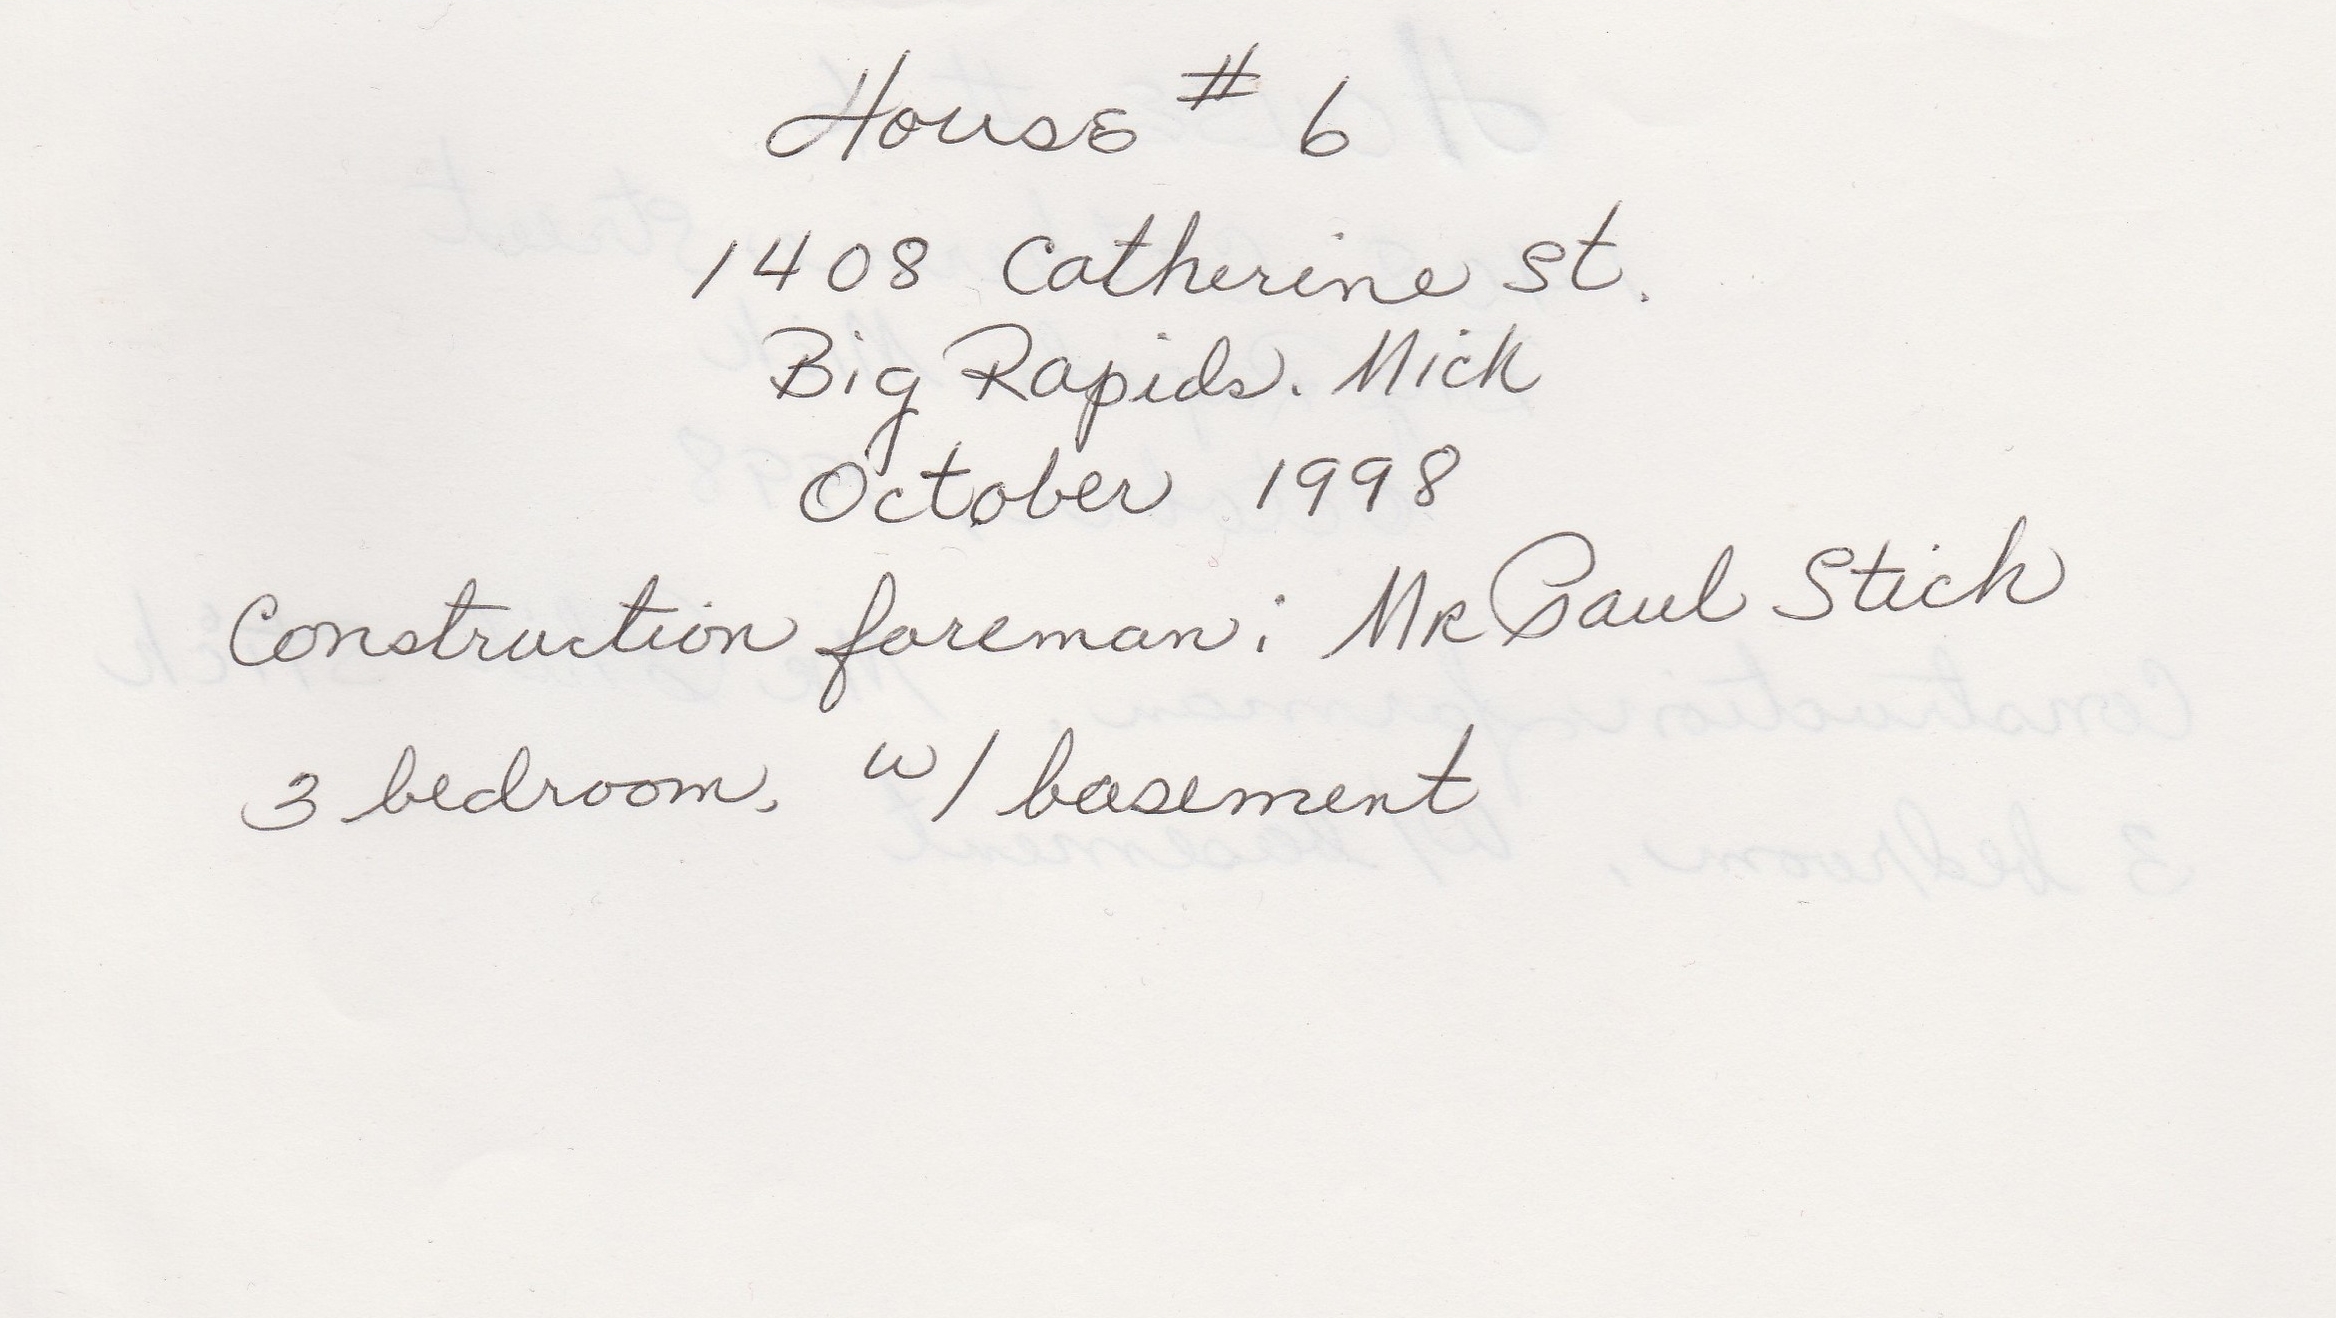 House # 6
1408 Catherine St.
Big Rapids. Mich
October 1998
Construction foreman: Mr Paul Stich
3 bedroom, w/ basement